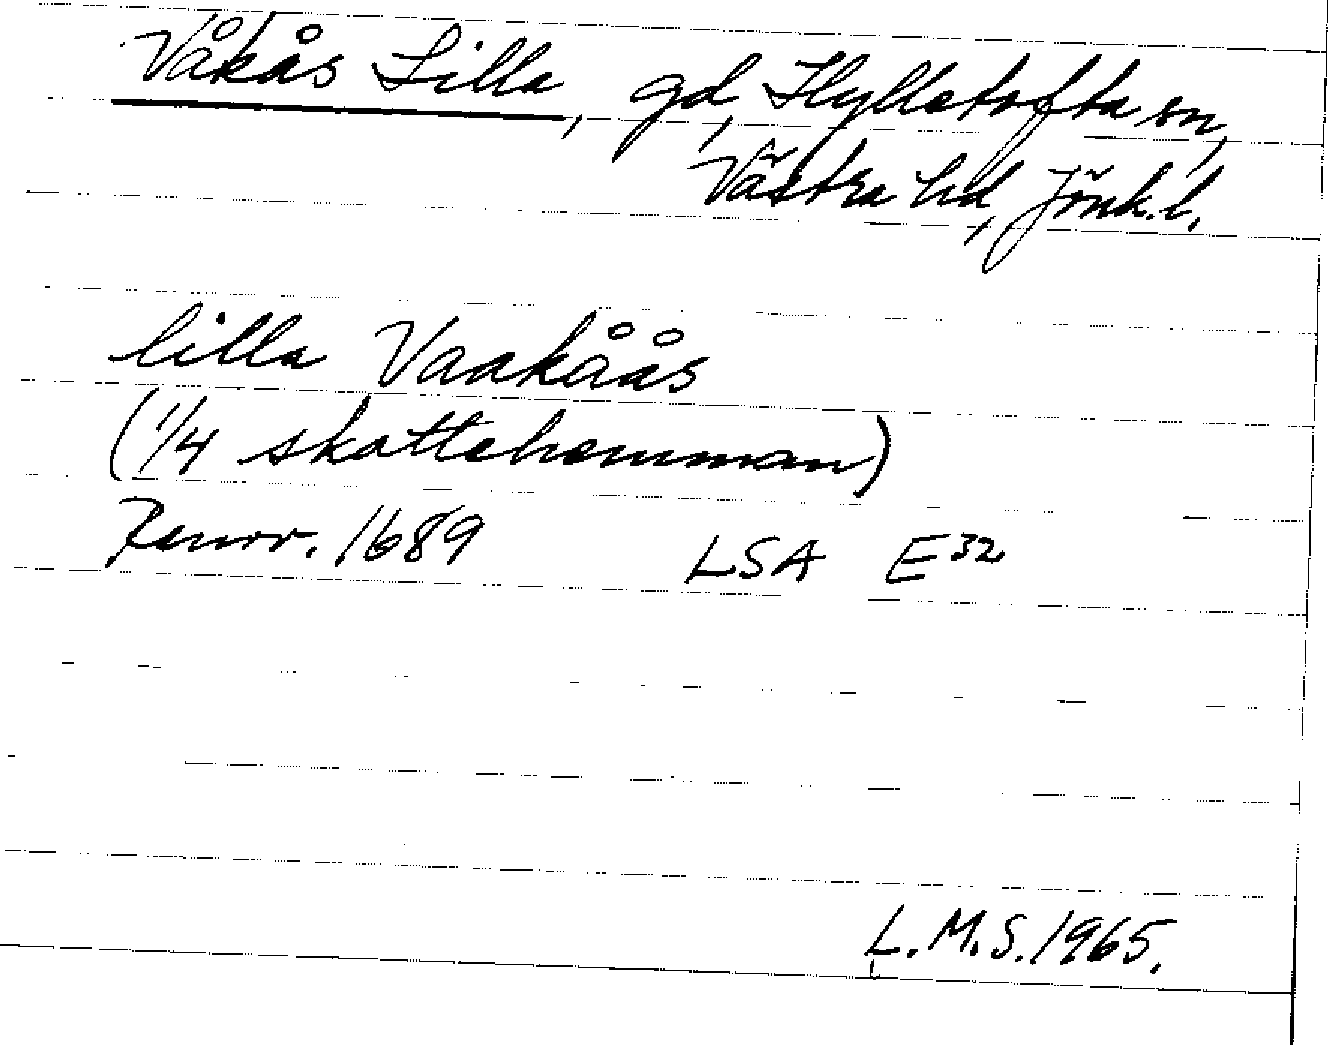 Våkås Lilla, gd, Hylletofta sn,
Västra hd, Jönk. l.
lilla Vaakåås
(1/4 skattehemman)
Renov. 1689 LSA E32
L.M.S. 1965.